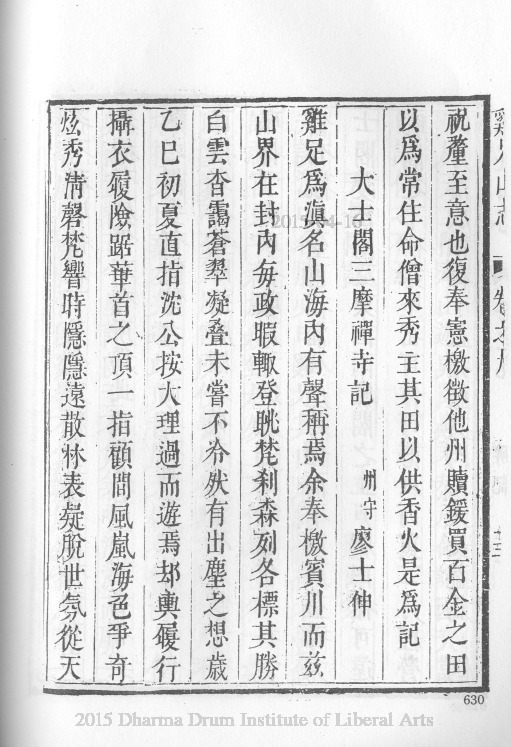 祝釐至意也復奉憲檄徵他州贖鍰買百金之田
以爲常住命僧來秀主其田以供香火是爲記
大士閣三摩禪寺記 州守廖士伸
雞足爲滇名山海內有聲稱焉余奉檄賓川而茲
山界在封內每政暇輙登眺梵刹森列各標其勝
白雲杳靄蒼翠凝叠未嘗不泠然有出塵之想歲
乙巳初夏直指沈公按大理過而遊焉却輿履行
攝衣履險踞華首之頂一指顧間風嵐海色爭奇
炫秀淸磬梵響時隱隱遠散林表疑脫世氛從天
630
2015 Dharma Drum Institute of Liberal Arts